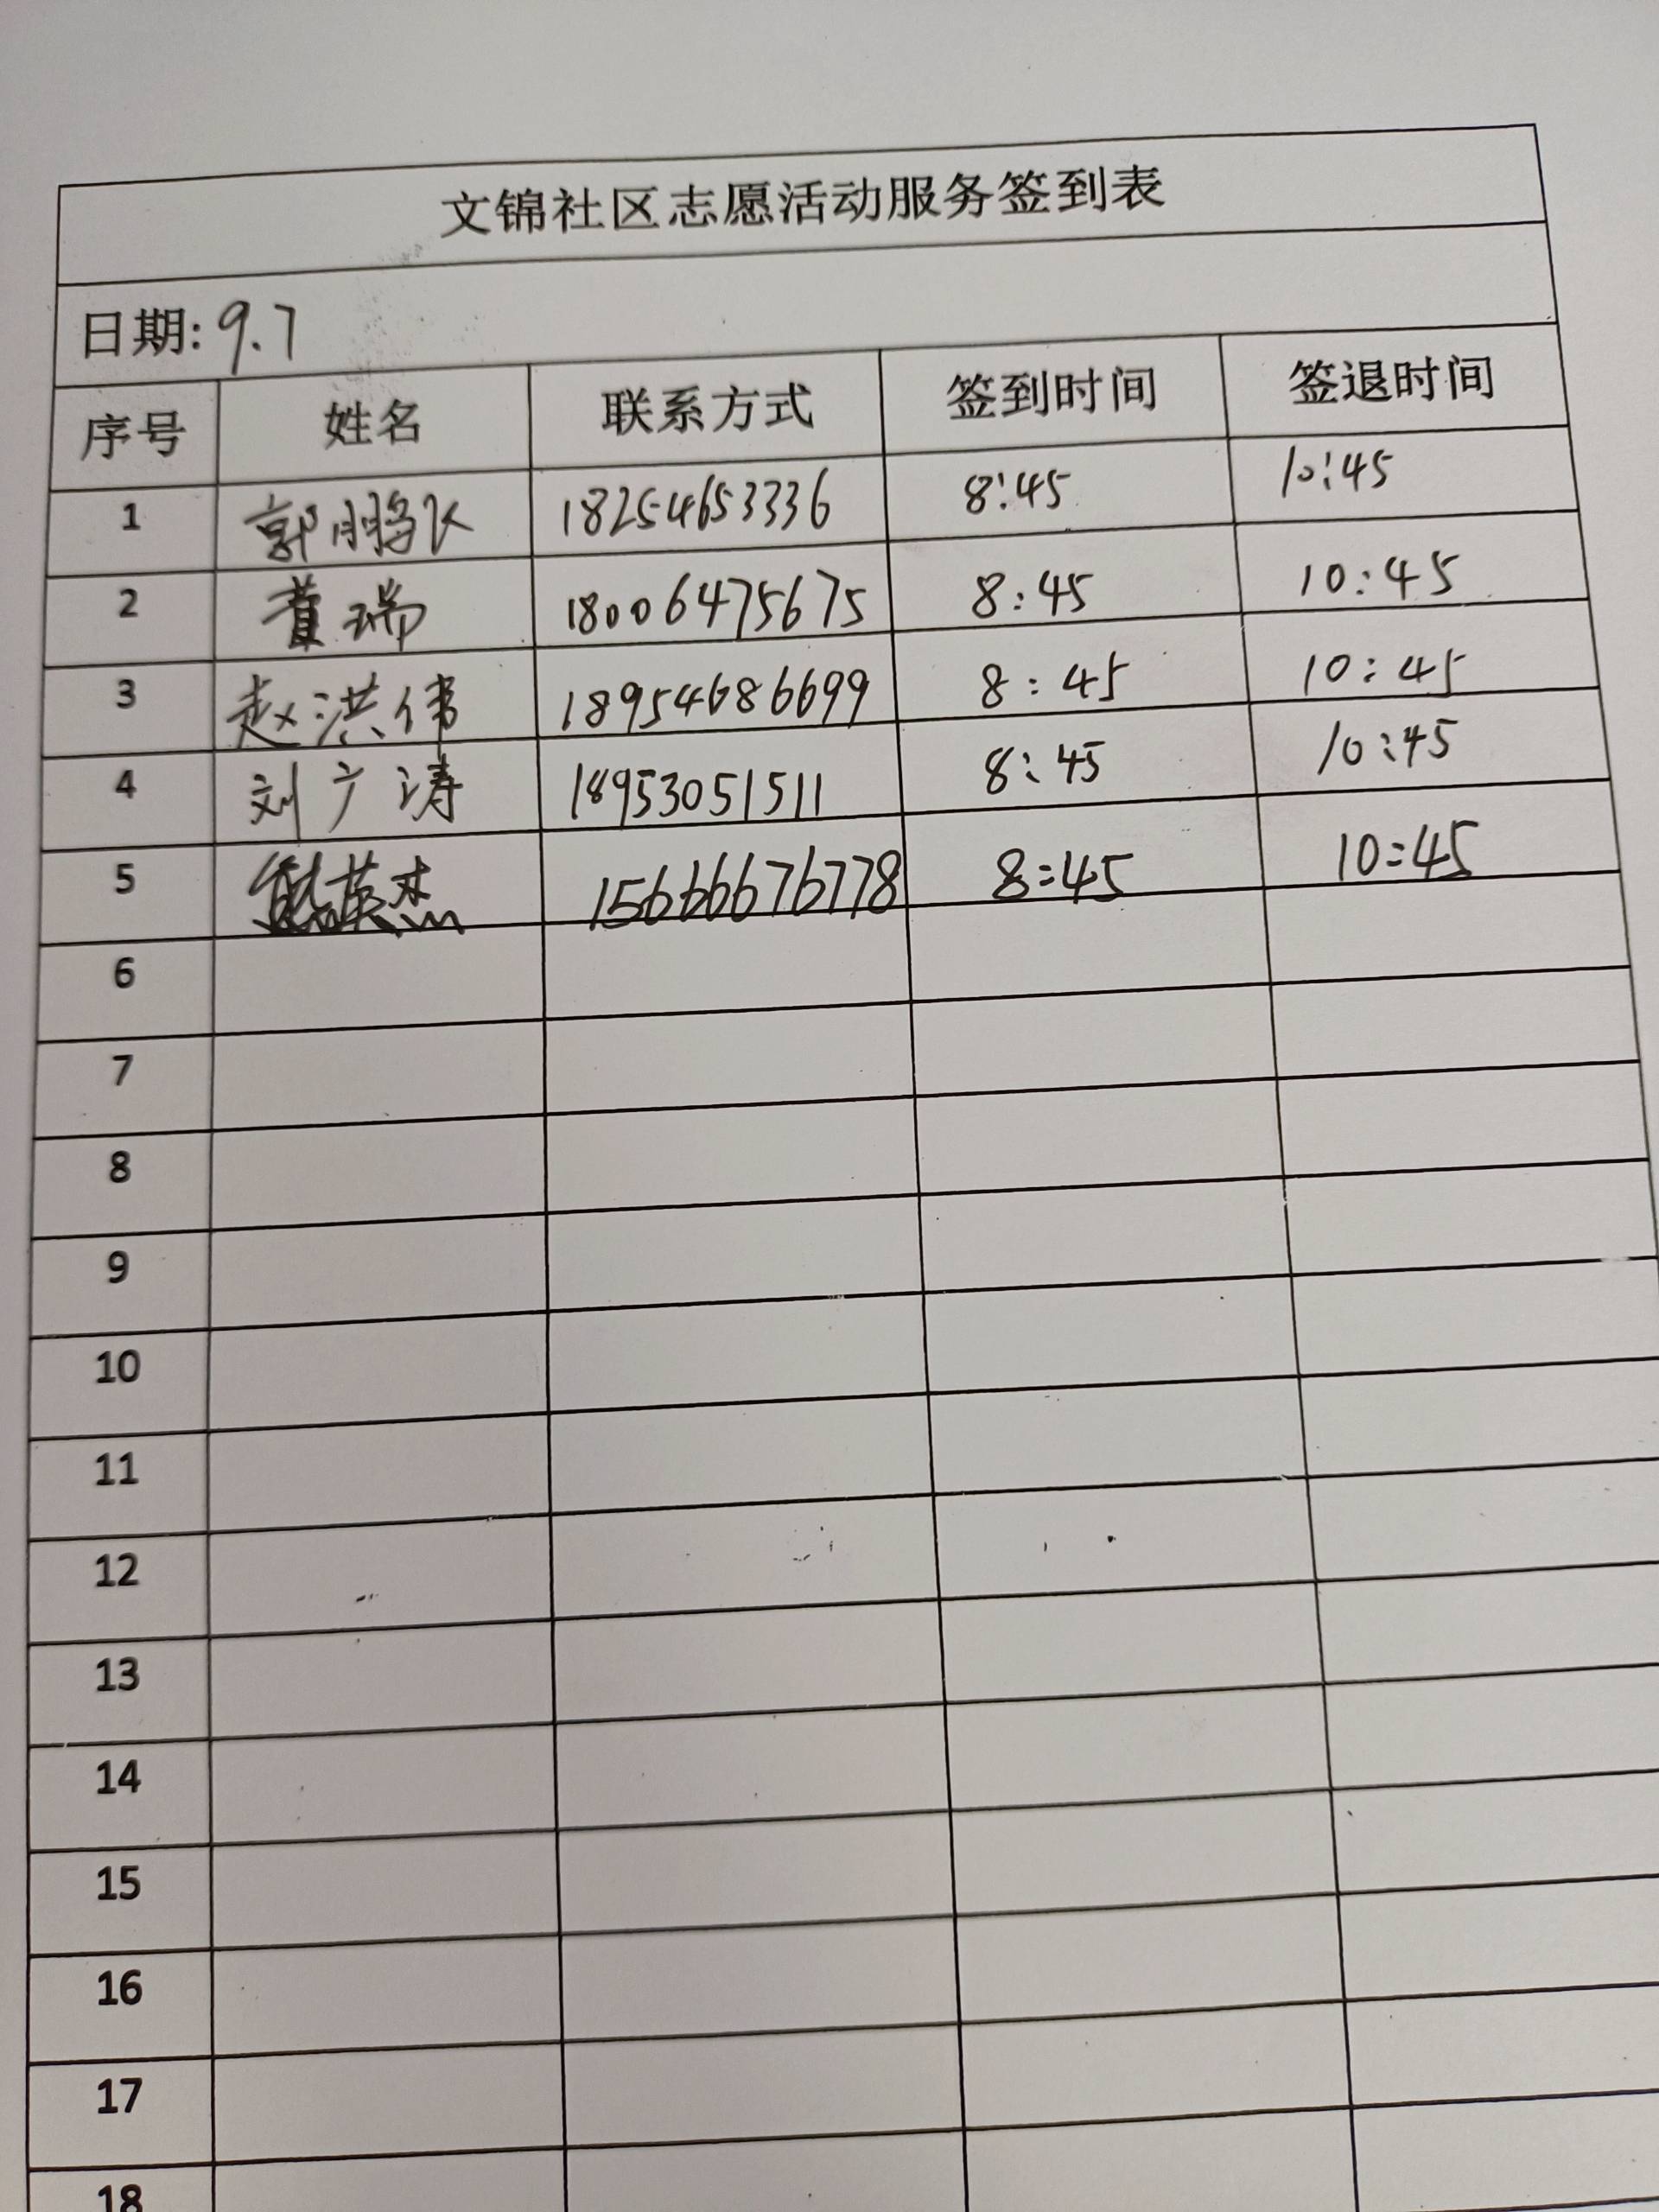 文锦社区志愿活动服务签到表
日期: 9.7
序号 姓名 联系方式 签到时间 签退时间
1 郭鹏飞 18254653336 8:45 10:45
2 董瑞 18006475675 8:45 10:45
3 赵洪伟 18954686699 8:45 10:45
4 刘广涛 18953051511 8:45 10:45
5 熊英杰 15666676778 8:45 10:45
6
7
8
9
10
11
12
13
14
15
16
17
18